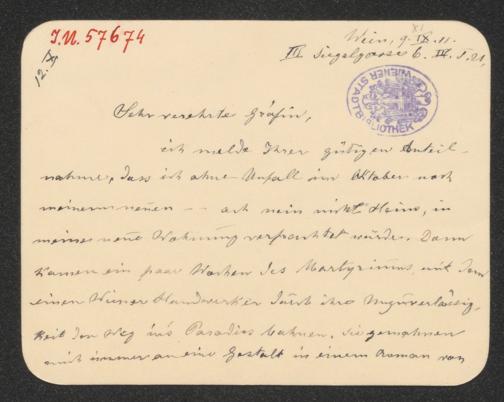 J.N. 57674
Wien, 9. XI. 11.
12. XI
III Siegelgasse 6. IV. T. 21,
WIENER STADTBIBLIOTHEK
Sehr verehrte Gräfin,
ich melde Ihrer gütigen Anteil-
nahme, dass ich ohne Unfall im Oktober nach
meinem neuen – – ach nein nicht Heim, in
meine neue Wohnung verfrachtet wurde. Dann
kamen ein paar Wochen des Martyriums, mit dem
einen Wiener Handwerker durch ihre Unzuverlässig-
keit den Weg ins Paradies bahnen. Sie gemahnen
mich immer an eine Gestalt in einem Roman von